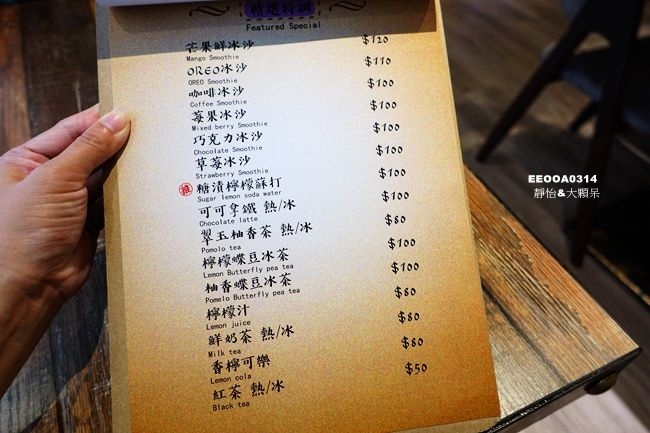 精選特調
Featured Special
芒果鮮冰沙 $120
Mango Smoothie
OREO冰沙 $110
OREO Smoothie
咖啡冰沙 $100
Coffee Smoothie
莓果冰沙 $100
Mixed berry Smoothie
巧克力冰沙 $100
Chocolate Smoothie
草莓冰沙 $100
Strawberry Smoothie
糖漬檸檬蘇打 $100
Sugar lemon soda water
可可拿鐵 熱/冰 $100
Chocolate latte
翠玉柚香茶 熱/冰 $80
Pomolo tea
檸檬蝶豆冰茶 $100
Lemon Butterfly pea tea
柚香蝶豆冰茶 $100
Pomelo Butterfly pea tea
檸檬汁 $80
Lemon juice
鮮奶茶 熱/冰 $80
Milk tea
香檸可樂 $80
Lemon cola
紅茶 熱/冰 $50
Black tea
EEOOA0314
靜怡&大顆呆